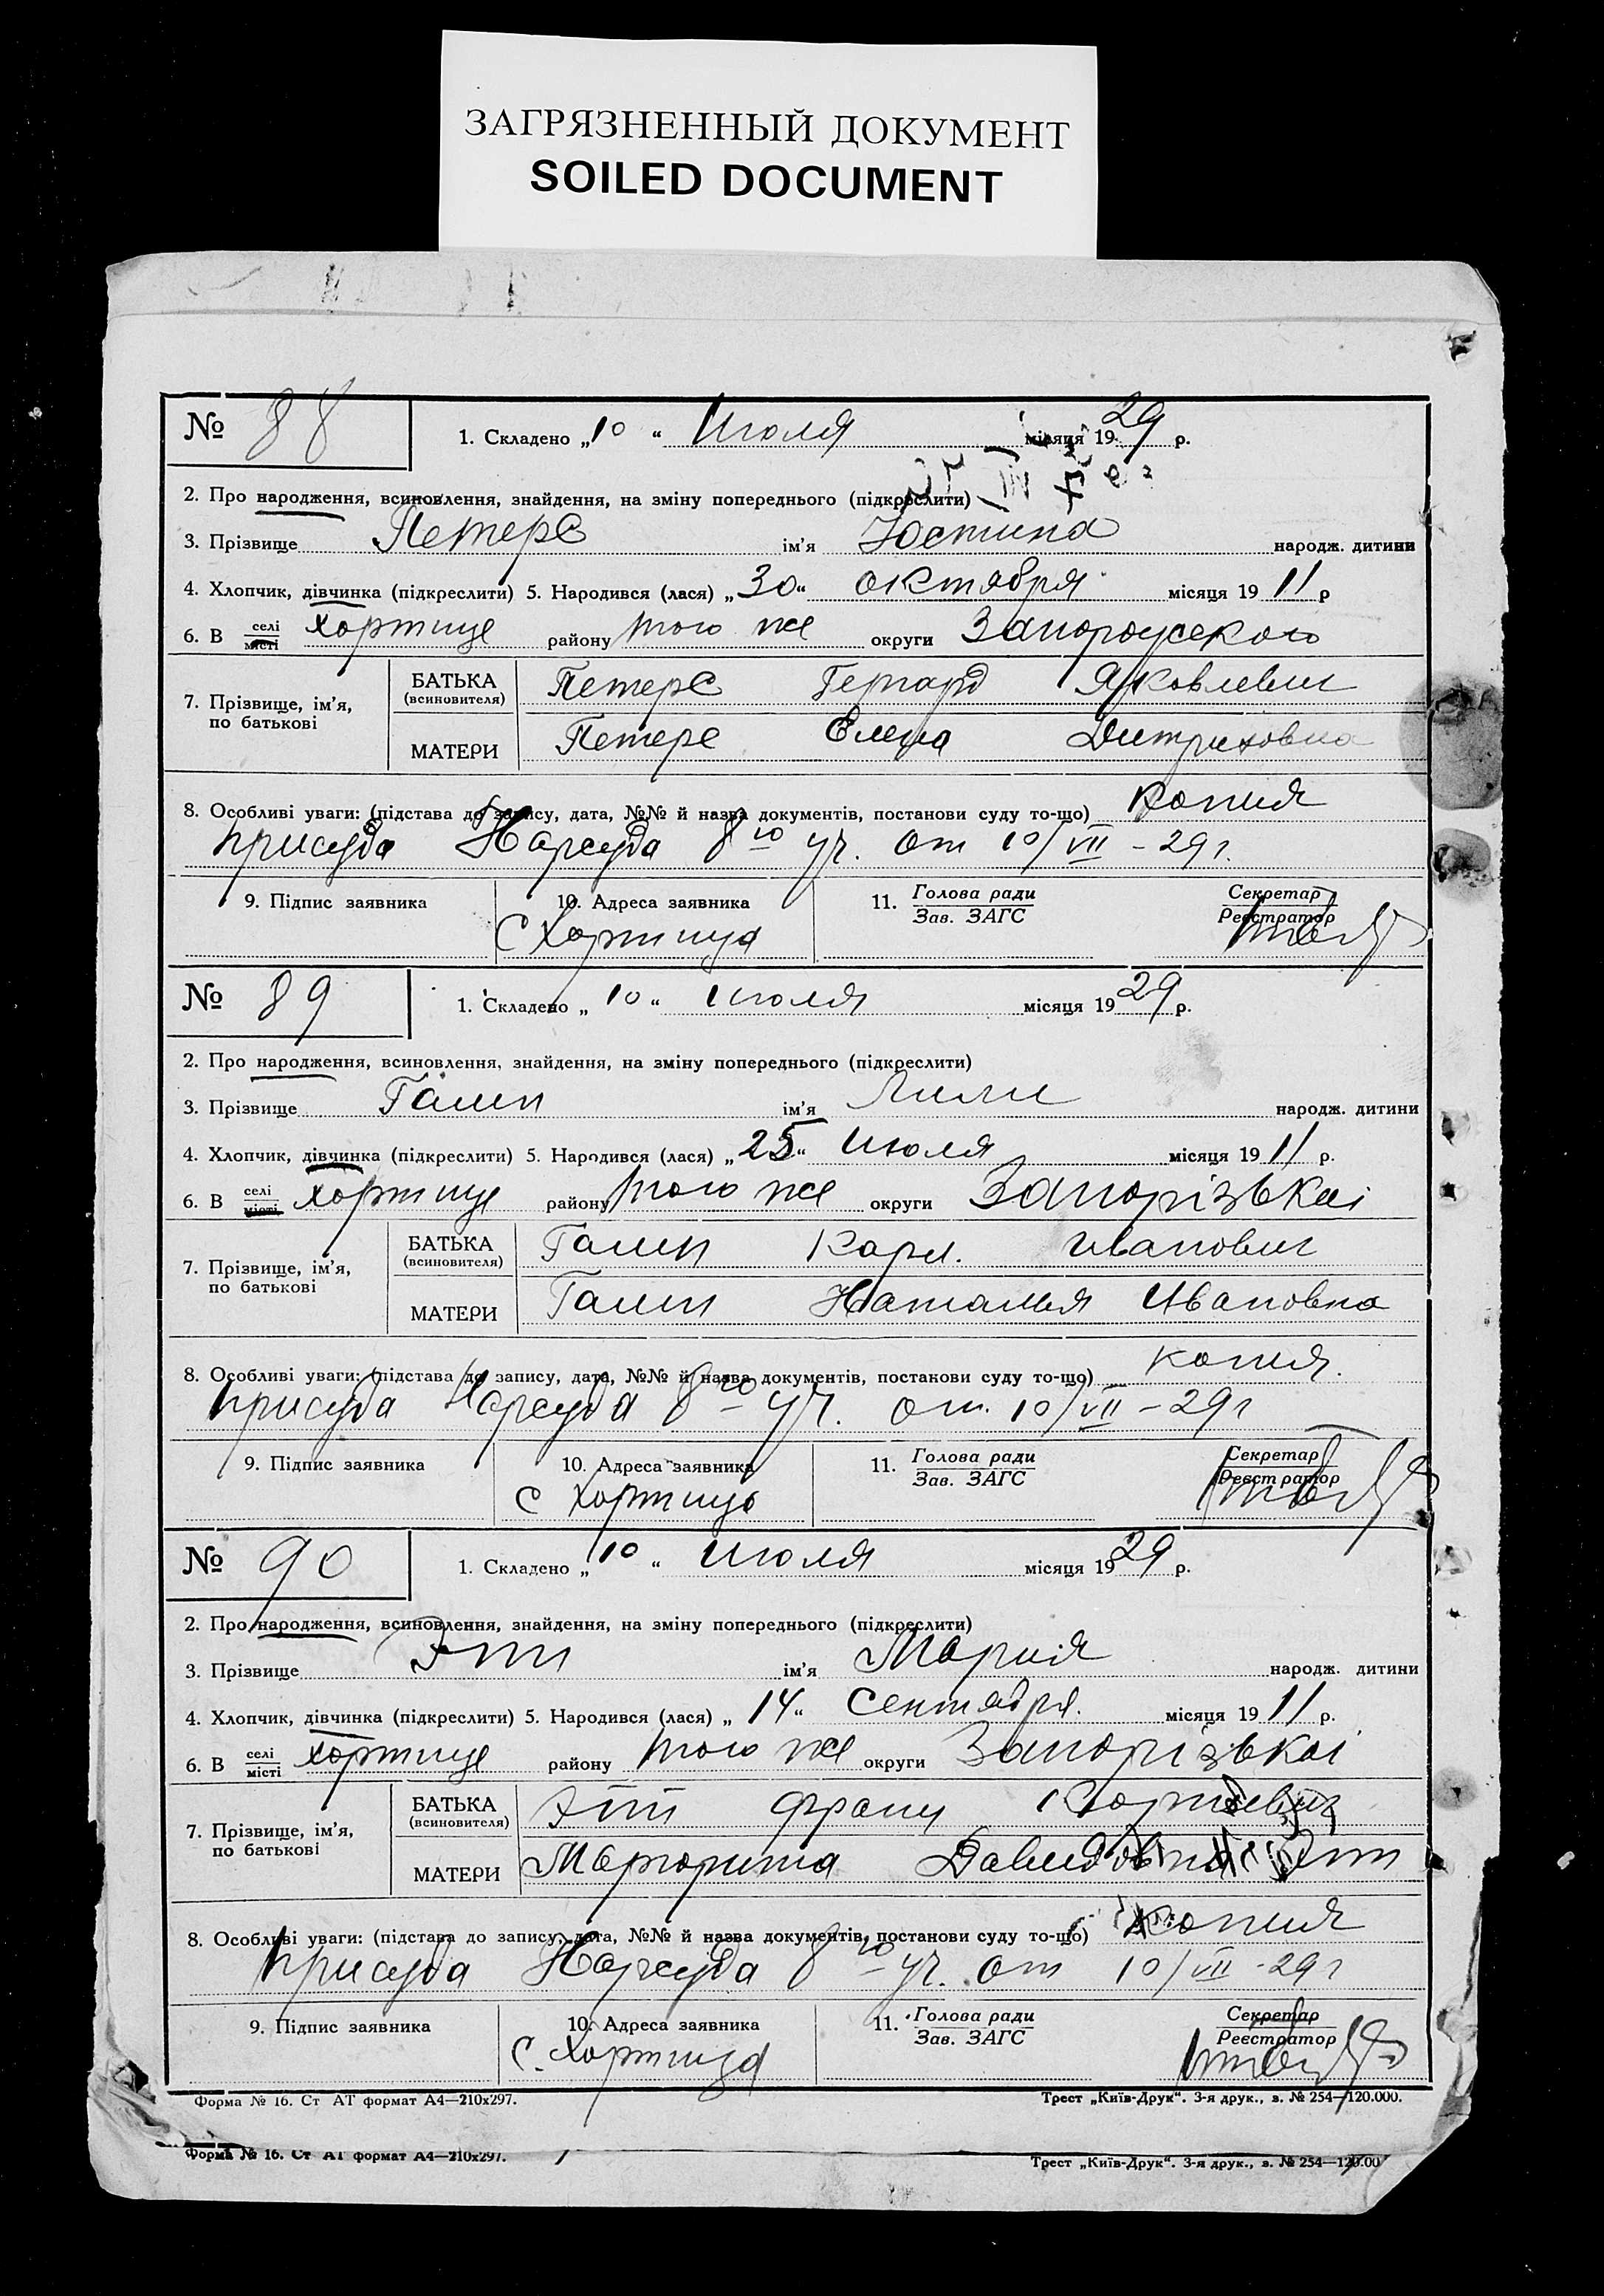 ЗАГРЯЗНЕННЫЙ ДОКУМЕНТ
SOILED DOCUMENT
№ 88 1. Складено „10“ Июля місяця 1929 р.
2. Про народження, всиновлення, знайдення, на зміну попереднього (підкреслити)
3. Прізвище Петерс ім’я Юстина народж. дитини
4. Хлопчик, дівчинка (підкреслити) 5. Народився (лася) „30“ октября місяця 1911 р
6. В селі місті Хортице району того же округи
7. Прізвище, ім’я, по батькові
БАТЬКА (всиновителя) Петерс Гергард Яковлевич
МАТЕРИ Петерс Елена Дитриховна
8. Особливі уваги: (підстава до запису, дата, №№ й назва документів, постанови суду то-що) копия
присуда Нарсуда 8го уч. от 10/VII - 29 г.
9. Підпис заявника 10. Адреса заявника 11. Голова ради Зав. ЗАГС Секретар Реєстратор
С Хортица
№ 89 1. Складено „10“ июля місяця 1929 р.
2. Про народження, всиновлення, знайдення, на зміну попереднього (підкреслити)
3. Прізвище Галеп ім’я Лили народж. дитини
4. Хлопчик, дівчинка (підкреслити) 5. Народився (лася) „25“ Июля місяця 1911 р.
6. В селі місті Хортице району того же округи Запорізькаі
7. Прізвище, ім’я, по батькові
БАТЬКА (всиновителя) Карл. Иванович
МАТЕРИ Наталья Ивановна
8. Особливі уваги: (підстава до запису, дата, №№ й назва документів, постанови суду то-що) копия.
присуда Нарсуда 8го уч. от. 10/VII - 29 г
9. Підпис заявника 10. Адреса заявника 11. Голова ради Зав. ЗАГС Секретар Реєстратор
С Хортица
№ 90 1. Складено „10“ июля місяця 1929 р.
2. Про народження, всиновлення, знайдення, на зміну попереднього (підкреслити)
3. Прізвище Эпп ім’я Мария народж. дитини
4. Хлопчик, дівчинка (підкреслити) 5. Народився (лася) „14“ Сентября. місяця 1911 р.
6. В селі місті Хортице району того же округи Запорізькаі
7. Прізвище, ім’я, по батькові
БАТЬКА (всиновителя) Эпп Франц
МАТЕРИ Маргарита Давидовна Эпп
8. Особливі уваги: (підстава до запису, дата, №№ й назва документів, постанови суду то-що) копия
присуда Нарсуда 8го уч. от 10/VII - 29 г
9. Підпис заявника 10. Адреса заявника 11. Голова ради Зав. ЗАГС Секретар Реєстратор
С. Хортица
Форма № 16. Ст АТ формат А4—210х297. Трест „Київ-Друк“. 3-я друк., з. № 254—120.000.
Форма № 16. Ст АТ формат А4—210х297. Трест „Київ-Друк“. 3-я друк., з. № 254—120.00